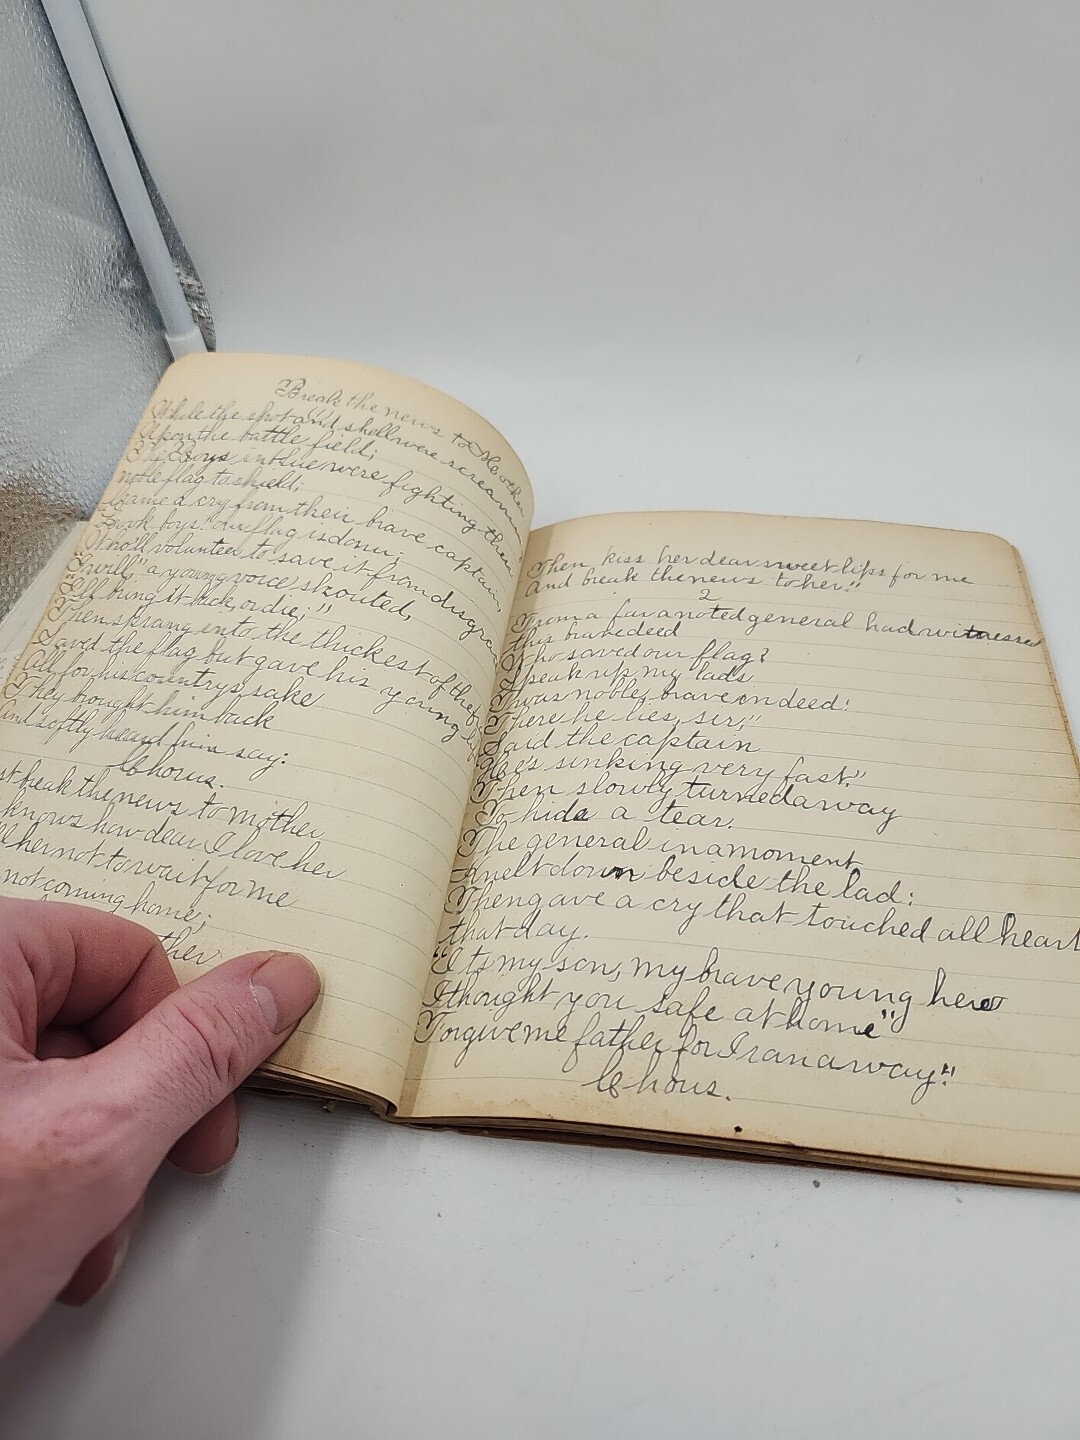 Break the news to Mother
While the shot and shell were screaming
Upon the battle field;
The Boys in blue were fighting their
noble flag to shield;
Came a cry from their brave captain,
"Look boys! our flag is down;
Who'll volunteer to save it from disgrace
"I will," a young voice shouted,
"I'll bring it back, or die;"
Then sprang into the thickest of the
Saved the flag but gave his young life
All for his countrys sake
They brought him back
And softly heard him say:
Chorus.
st break the news to mother
knows how dear I love her
ll her not to wait for me
not coming home;
ther
Then kiss her dear sweet lips for me
And break the news to her."
2
From a far a noted general had witnessed
this brave deed
Who saved our flag?
Speak up my lads
Twas noble, brave indeed!
"There he lies, sir,"
Said the captain
"He's sinking very fast."
Then slowly turned away
To hide a tear.
The general in a moment,
Knelt down beside the lad:
Then gave a cry that touched all heart
that day.
"Its my son, my brave young hero
I thought you safe at home"
"Forgive me father for I ran away."
Chous.